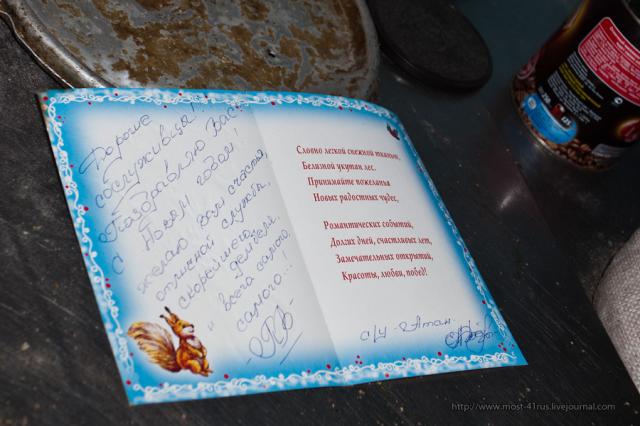 Дорогие
сослуживцы!
Поздравляю Вас
с Новым годом!
желаю Вам счастья,
отличной службы,
скорейшего
дембеля,
и всего самого
самого...!
Словно легкой снежной тканью,
Белизной укутан лес.
Принимайте пожеланья
Новых радостных чудес,
Романтических событий,
Долгих дней, счастливых лет,
Замечательных открытий,
Красоты, любви, побед!
с/у - Атан -
http://www.most-41rus.livejournal.com